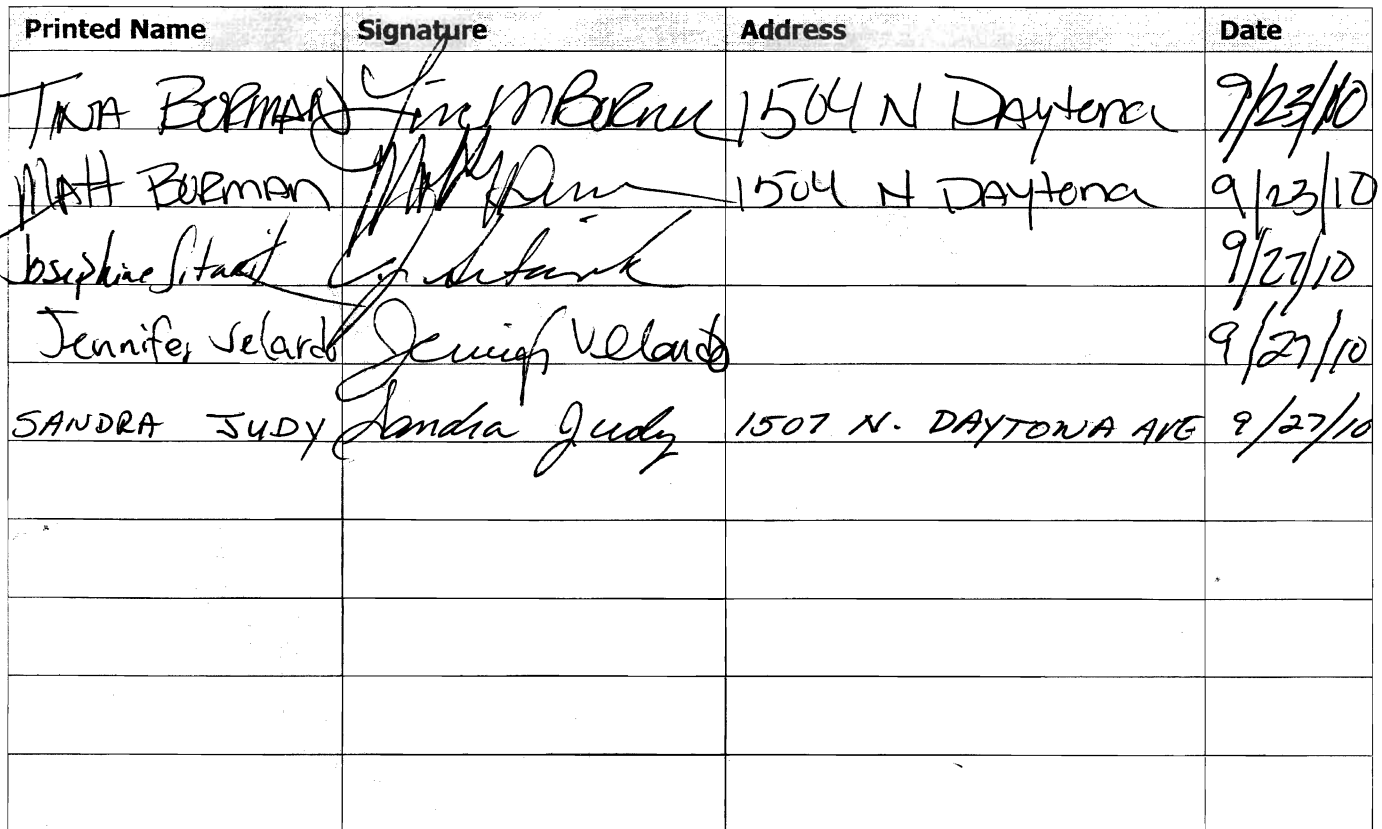 Printed Name Signature Address Date
TINA BORMAN Tina M Borman 1504 N Daytona 9/23/10
MATT BORMAN 1504 N DAytona 9/23/10
Josephine Sitarik J. Sitarik 9/27/10
Jennifer Velardo Jennifer Velardo 9/27/10
SANDRA JUDY Sandra Judy 1507 N. DAYTONA AVE 9/27/10